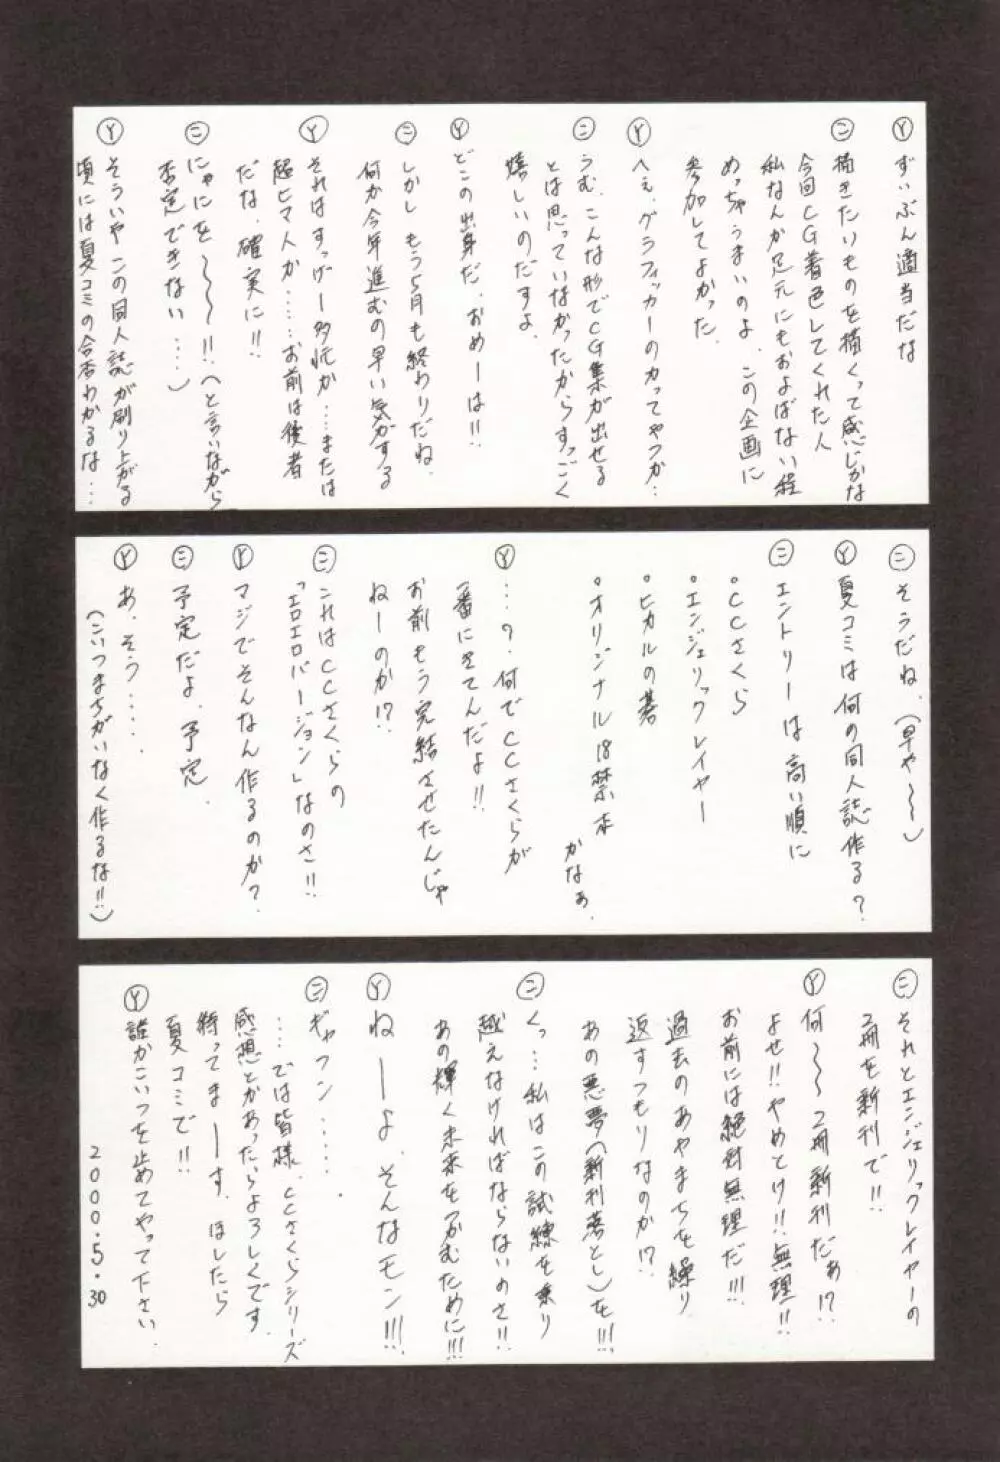 Ⓨ ずいぶん適当だな
㊁ 描きたいものを描くって感じかな
今回CG着色してくれた人
私なんか足元にもおよばない程
めっちゃうまいのよ、この企画に
参加してよかった。
Ⓨ へぇ、グラフィッカーのカってやつか…
㊁ うむ、こんな形でCG集が出せる
とは思っていなかったからすっごく
嬉しいのだすよ。
Ⓨ どこの出身だ、おめーは!!
㊁ しかし もう5月も終わりだね、
何か今年進むの早い気がする
Ⓨ それはすっげー多忙か……または
超ヒマ人か……お前は後者
だな、確実に!!
㊁ にゃにを〜〜〜!!(と言いながら
否定できない……)
Ⓨ そういや この同人誌が刷り上がる
頃には夏コミの合否わかるな…
㊁ そうだね、(早や〜〜)
Ⓨ 夏コミは何の同人誌作る?
㊁ エントリーは高い順に
• CCさくら
• エンジェリックレイヤー
• ヒカルの碁
• オリジナル18禁本
かなぁ、
Ⓨ …?何でCCさくらが
一番にきてんだよ!!
お前もう完結させたんじゃ
ねーのか!?
㊁ これはCCさくらの
「エロエロバージョン」なのさ!!
Ⓨ マジでそんなん作るのか?
㊁ 予定だよ、予定、
Ⓨ あ、そう……、
(こいつまちがいなく作るな!!)
㊁ それとエンジェリックレイヤーの
2冊を新刊で!!
Ⓨ 何〜〜2冊新刊だぁ!?
よせ!!やめとけ!!無理!!
お前には絶対無理だ!!!
過去のあやまちを繰り
返すつもりなのか!?
あの悪夢(新刊落とし)を!!!
㊁ くっ…私はこの試練を乗り
越えなければならないのさ!!
あの輝く未来をつかむために!!!
Ⓨ ねーーよ、そんなモン!!!
㊁ ギャフン……、
……では皆様、CCさくらシリーズ
感想とかあったらよろしくです、
待ってまーーす、ほしたら
夏コミで!!
Ⓨ 誰かこいつを止めてやって下さい、
2000.5.30